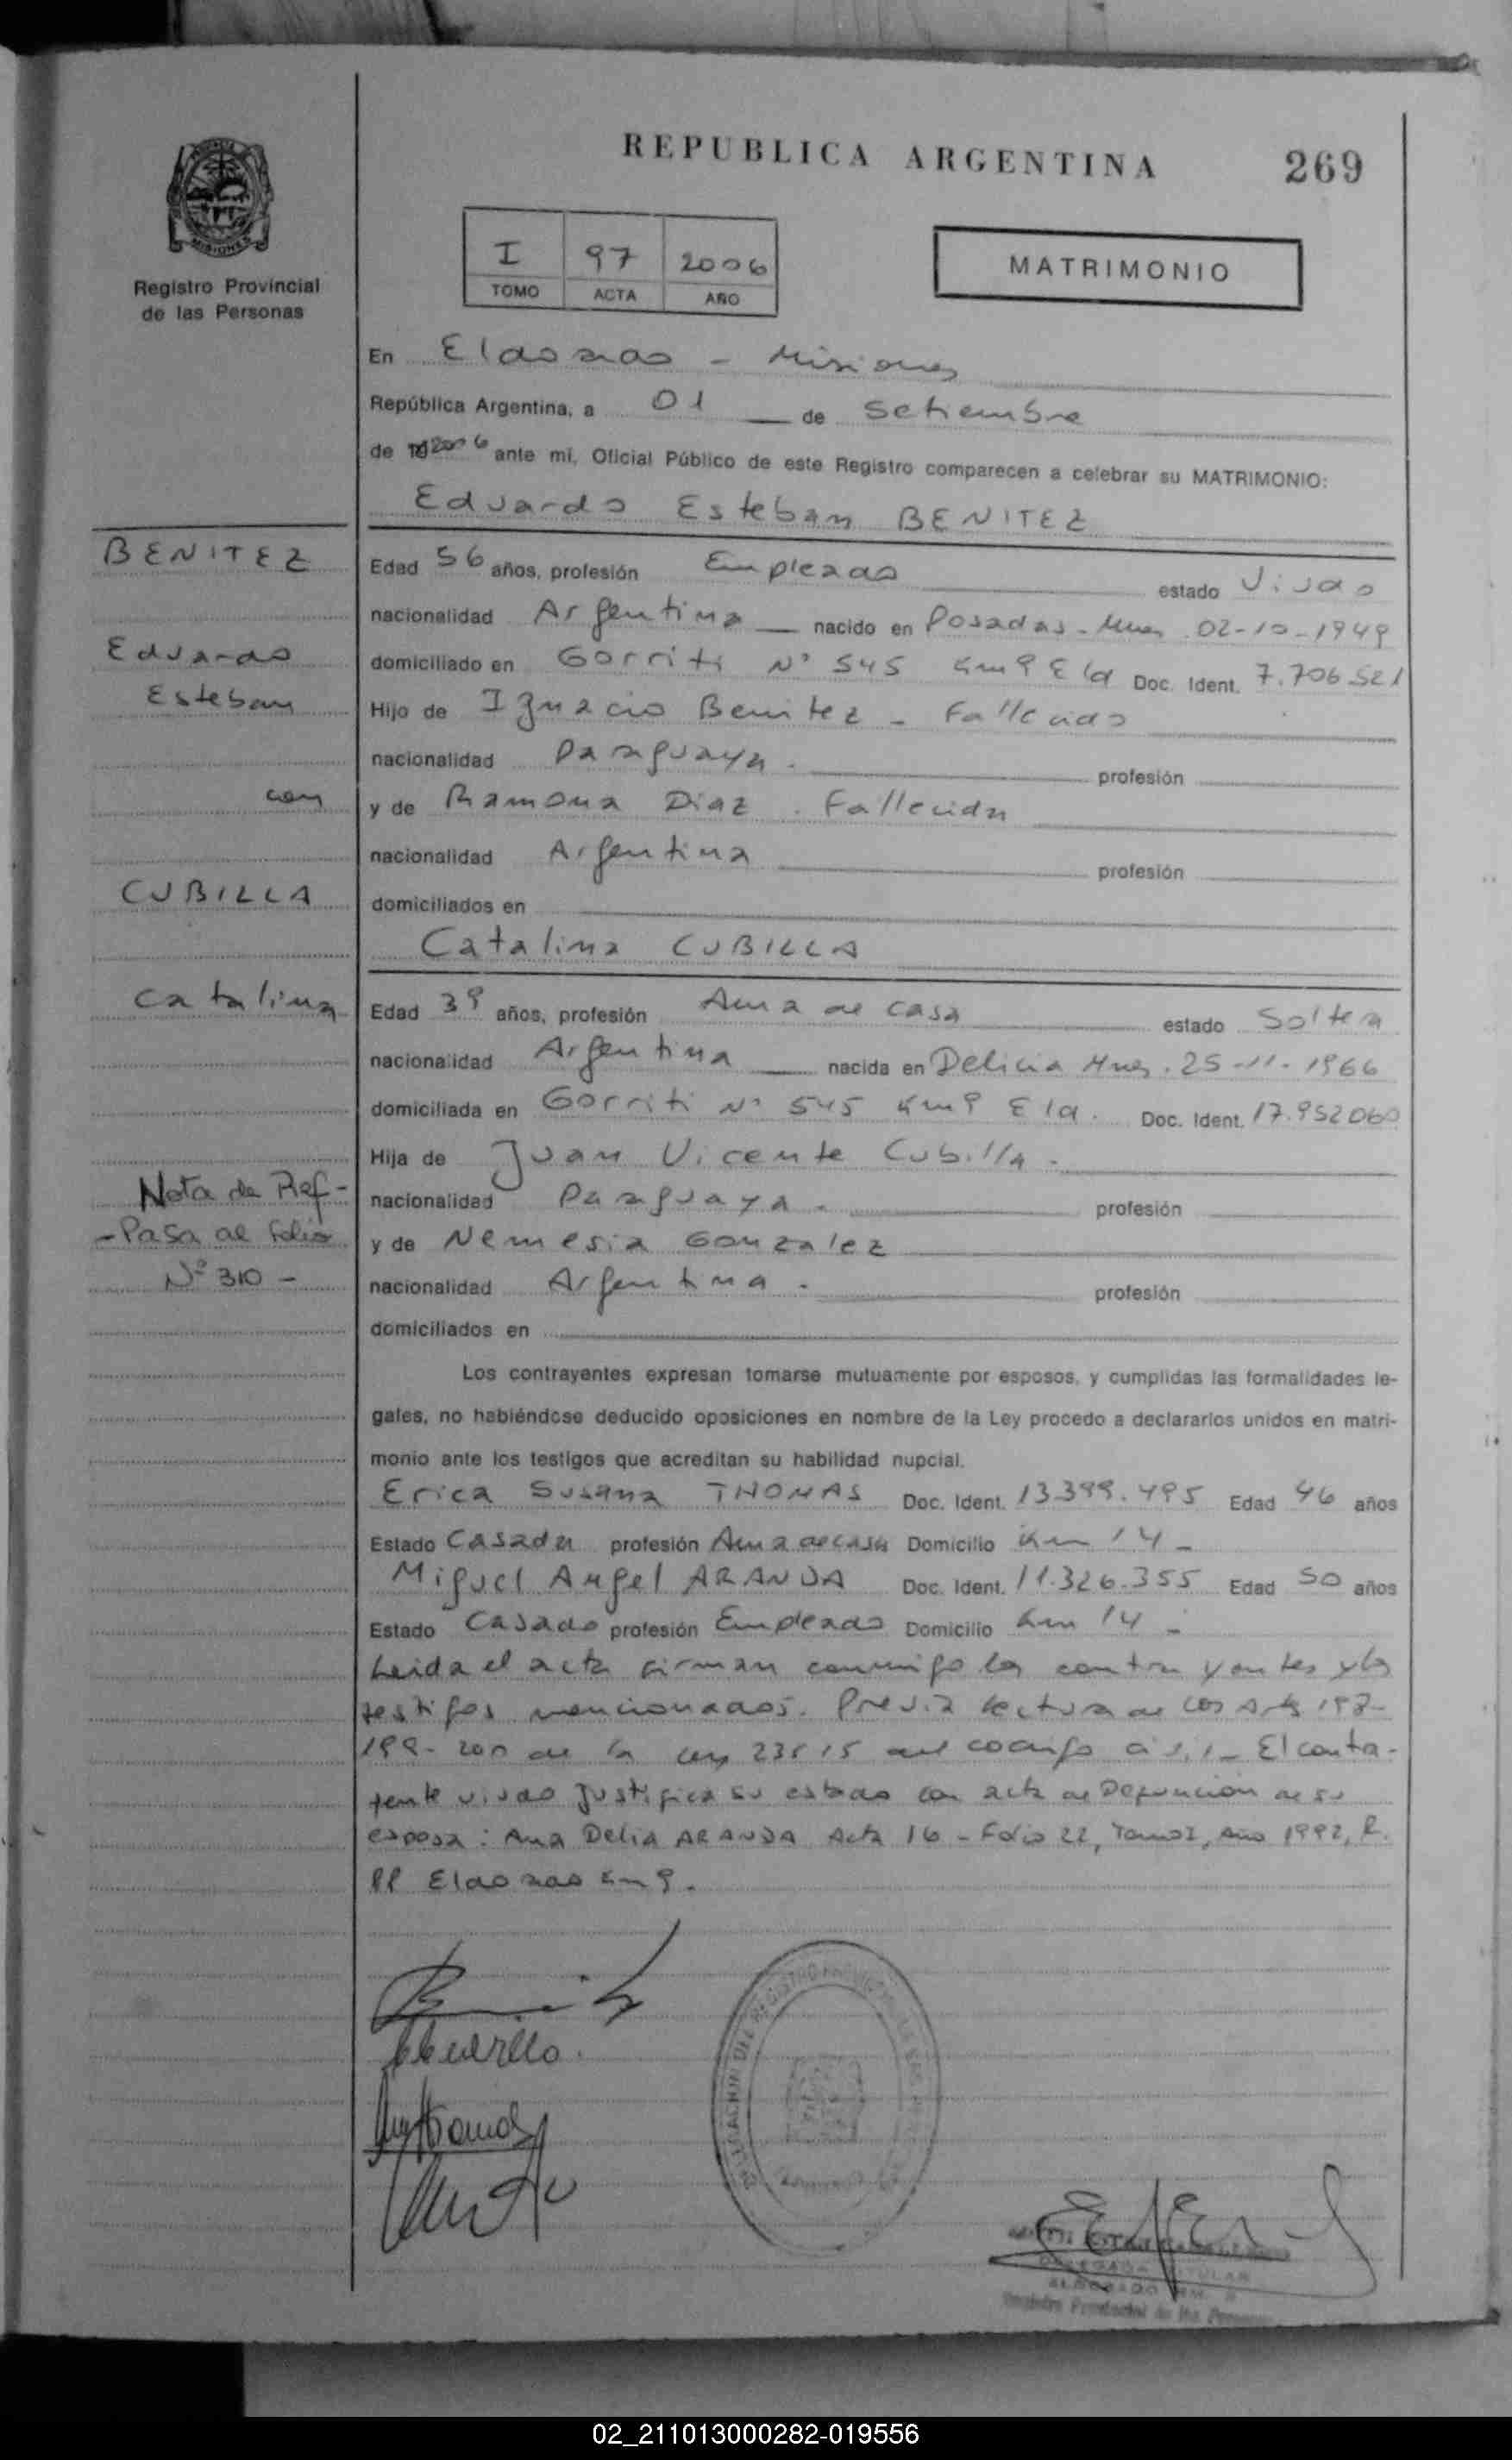 REPUBLICA ARGENTINA
269
MISIONES
Registro Provincial
de las Personas
I 97 2006
TOMO ACTA AÑO
MATRIMONIO
En Eldorado - Misiones
República Argentina, a 01 de Setiembre
de 19 2006 ante mi, Oficial Público de este Registro comparecen a celebrar su MATRIMONIO:
Eduardo Esteban BENITEZ
BENITEZ
Eduardo
Esteban
con
CUBILLA
Catalina
Nota de Ref-
-Pasa al folio
Nº 310 -
Edad 56 años, profesión Empleado estado Viudo
nacionalidad Argentina nacido en Posadas - Mnes. 02-10-1949
domiciliado en Gorriti Nº 545 Km 9 Eld Doc. Ident. 7.706.521
Hijo de Ignacio Benitez - Fallecido
nacionalidad Paraguaya. profesión
y de Ramona Diaz. Fallecida
nacionalidad Argentina profesión
domiciliados en
Catalina CUBILLA
Edad 39 años, profesión Ama de casa estado Soltera
nacionalidad Argentina nacida en Delicia Mnes. 25-11-1966
domiciliada en Gorriti Nº 545 Km 9 Eld. Doc. Ident. 17.952060
Hija de Juan Vicente Cubilla.
nacionalidad Paraguaya. profesión
y de Nemesia Gonzalez
nacionalidad Argentina. profesión
domiciliados en
Los contrayentes expresan tomarse mutuamente por esposos, y cumplidas las formalidades le-
gales, no habiéndose deducido oposiciones en nombre de la Ley procedo a declararlos unidos en matri-
monio ante los testigos que acreditan su habilidad nupcial.
Erica Susana THOMAS Doc. Ident. 13.399.495 Edad 46 años
Estado Casada profesión Ama de casa Domicilio Km 14 -
Miguel Angel ARANDA Doc. Ident. 11.326.355 Edad 50 años
Estado Casado profesión Empleado Domicilio Km 14 -
Leida el acta firman conmigo los contrayentes y los
testigos mencionados. Previa lectura de los Arts 198-
199-200 de la Ley 23515 del codigo civil - El contra-
yente viudo Justifica su estado con acta de Defunción de su
esposa: Ana Delia ARANDA Acta 16 - Folio 22, Tomo I, Año 1992, R.
PP Eldorado Km 9.
DELEGADA TITULAR
ELDORADO KM. 9
Registro Provincial de las Personas
02_211013000282-019556